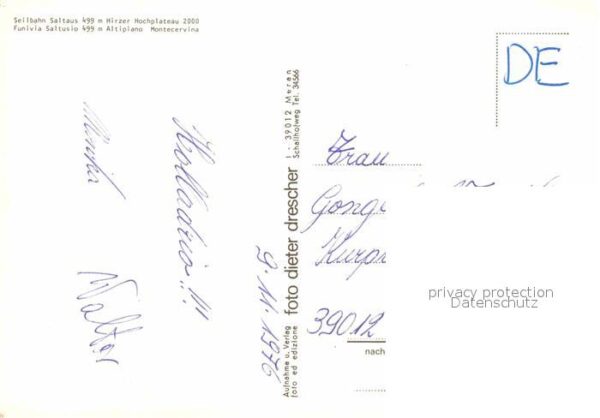 Seilbahn Saltaus 499 m Hirzer Hochplateau 2000
Funivia Saltusio 499 m Altipiano Montecervina
DE
Holladrio!!!
Monika
Walter
9.11.1976
Aufnahme u. Verlag
foto ed edizione
foto dieter drescher
I - 39012 Meran
Schallhofweg Tel. 34566
Frau
39012
nach
privacy protection
Datenschutz